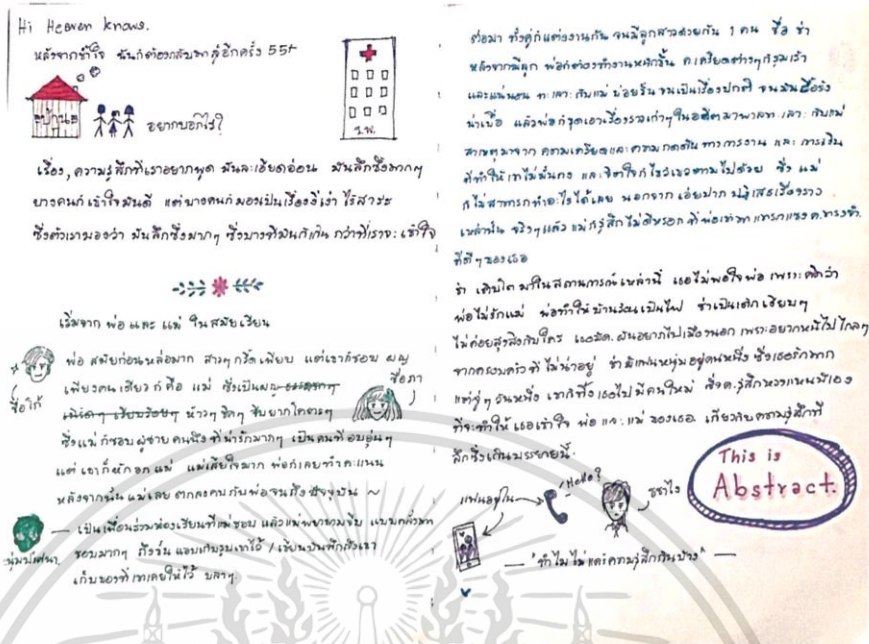 Hi Heaven knows.
หลังจากช้ำใจ ฉันก็ต้องกลับมาสู้อีกครั้ง 55+
ร.พ.
อยากบอกไรว์?
เรื่อง, ความรู้สึกที่เราอยากพูด มันละเอียดอ่อน มันลึกซึ้งมากๆ
บางคนก็เข้าใจมันดี แต่บางคนก็มองเป็นเรื่องงี่เง่า ไร้สาระ
ซึ่งตัวเรามองว่า มันลึกซึ้งมากๆ ซึ่งบางทีมันก็เกิน กว่าที่เราจะเข้าใจ
เริ่มจาก พ่อ และ แม่ ในสมัยเรียน
พ่อ สมัยก่อนหล่อมาก สาวๆ กรี๊ดเพียบ แต่เขาก็ชอบ ผญ
เพียงคนเดียว ก็ คือ แม่ ซึ่งเป็นผญ
ห้าวๆ
ซึ่งแม่ก็ชอบผู้ชาย คนนึง ที่น่ารักมากๆ เป็นคนที่อบอุ่นๆ
แต่ เขาก็หักอกแม่ แม่เสียใจมาก พ่อก็เลยทำคะแนน
หลังจากนั้น แม่เลย ตกลงคบกับพ่อจนถึงปัจจุบัน ~
ชื่อโก้
ชื่อภา
— เป็นเพื่อนร่วมห้องเรียนที่แม่ชอบ แล้วแม่พยายามจีบ
ชอบมากๆ ถึงขั้น แอบเก็บรูปเขาไว้ / เขียนบันทึกถึงเขา
เก็บของที่เขาเคยให้ไว้ บลาๆ
ต่อมา ทั้งคู่ก็แต่งงานกัน จนมีลูกสาวด้วยกัน 1 คน ชื่อ ซ่า
หลังจากมีลูก พ่อก็ต้องทำงานหนักขึ้น ค.เครียดต่างๆก็รุมเร้า
และแน่นอน ทะเลาะกับแม่ บ่อยขึ้น จนเป็นเรื่องปกติ
น่าเบื่อ แล้วพ่อก็ขุดเอาเรื่องราวเก่าๆในอดีตมาพาลทะเลาะกับแม่
สาเหตุมาจาก ความเครียดและความกดดัน ทางการงาน และ การเงิน
ที่ทำให้เขาไม่มั่นคง และจิตใจก็ไขว้เขวตามไปด้วย ซึ่ง แม่
ก็ไม่สามารถทำอะไรได้เลย นอกจาก เอ่ยปาก ปฏิเสธเรื่องราว
เหล่านั้น จริงๆแล้ว แม่ก็รู้สึกไม่ดีหรอก ที่พ่อเข้ามาแทรกแซง ค.ทรงจำ
ที่ดีๆของเธอ
ซ่า เติบโตมาในสถานการณ์เหล่านี้ เธอไม่พอใจพ่อ เพราะคิดว่า
พ่อไม่รักแม่ พ่อทำให้บ้านร้อนเป็นไฟ ซ่าเป็นเด็กเงียบๆ
ไม่ค่อยสุงสิงกับใคร ฝันอยากไปเมืองนอก เพราะอยากหนีไปไกลๆ
จากครอบครัวที่ไม่น่าอยู่ ซ่ามีแฟนหนุ่มอยู่คนหนึ่ง ซึ่งเธอรักมาก
แต่อยู่ๆ วันหนึ่ง เขาก็ทิ้งเธอไปมีคนใหม่
ที่จะทำให้ เธอเข้าใจ พ่อ และ แม่ ของเธอ. เกี่ยวกับความรู้สึกที่
ลึกซึ้งเกินบรรยายนี้.
This is
Abstract.
"Hello?
— "ทำไมไม่แคร์ความรู้สึกกันบ้าง" —